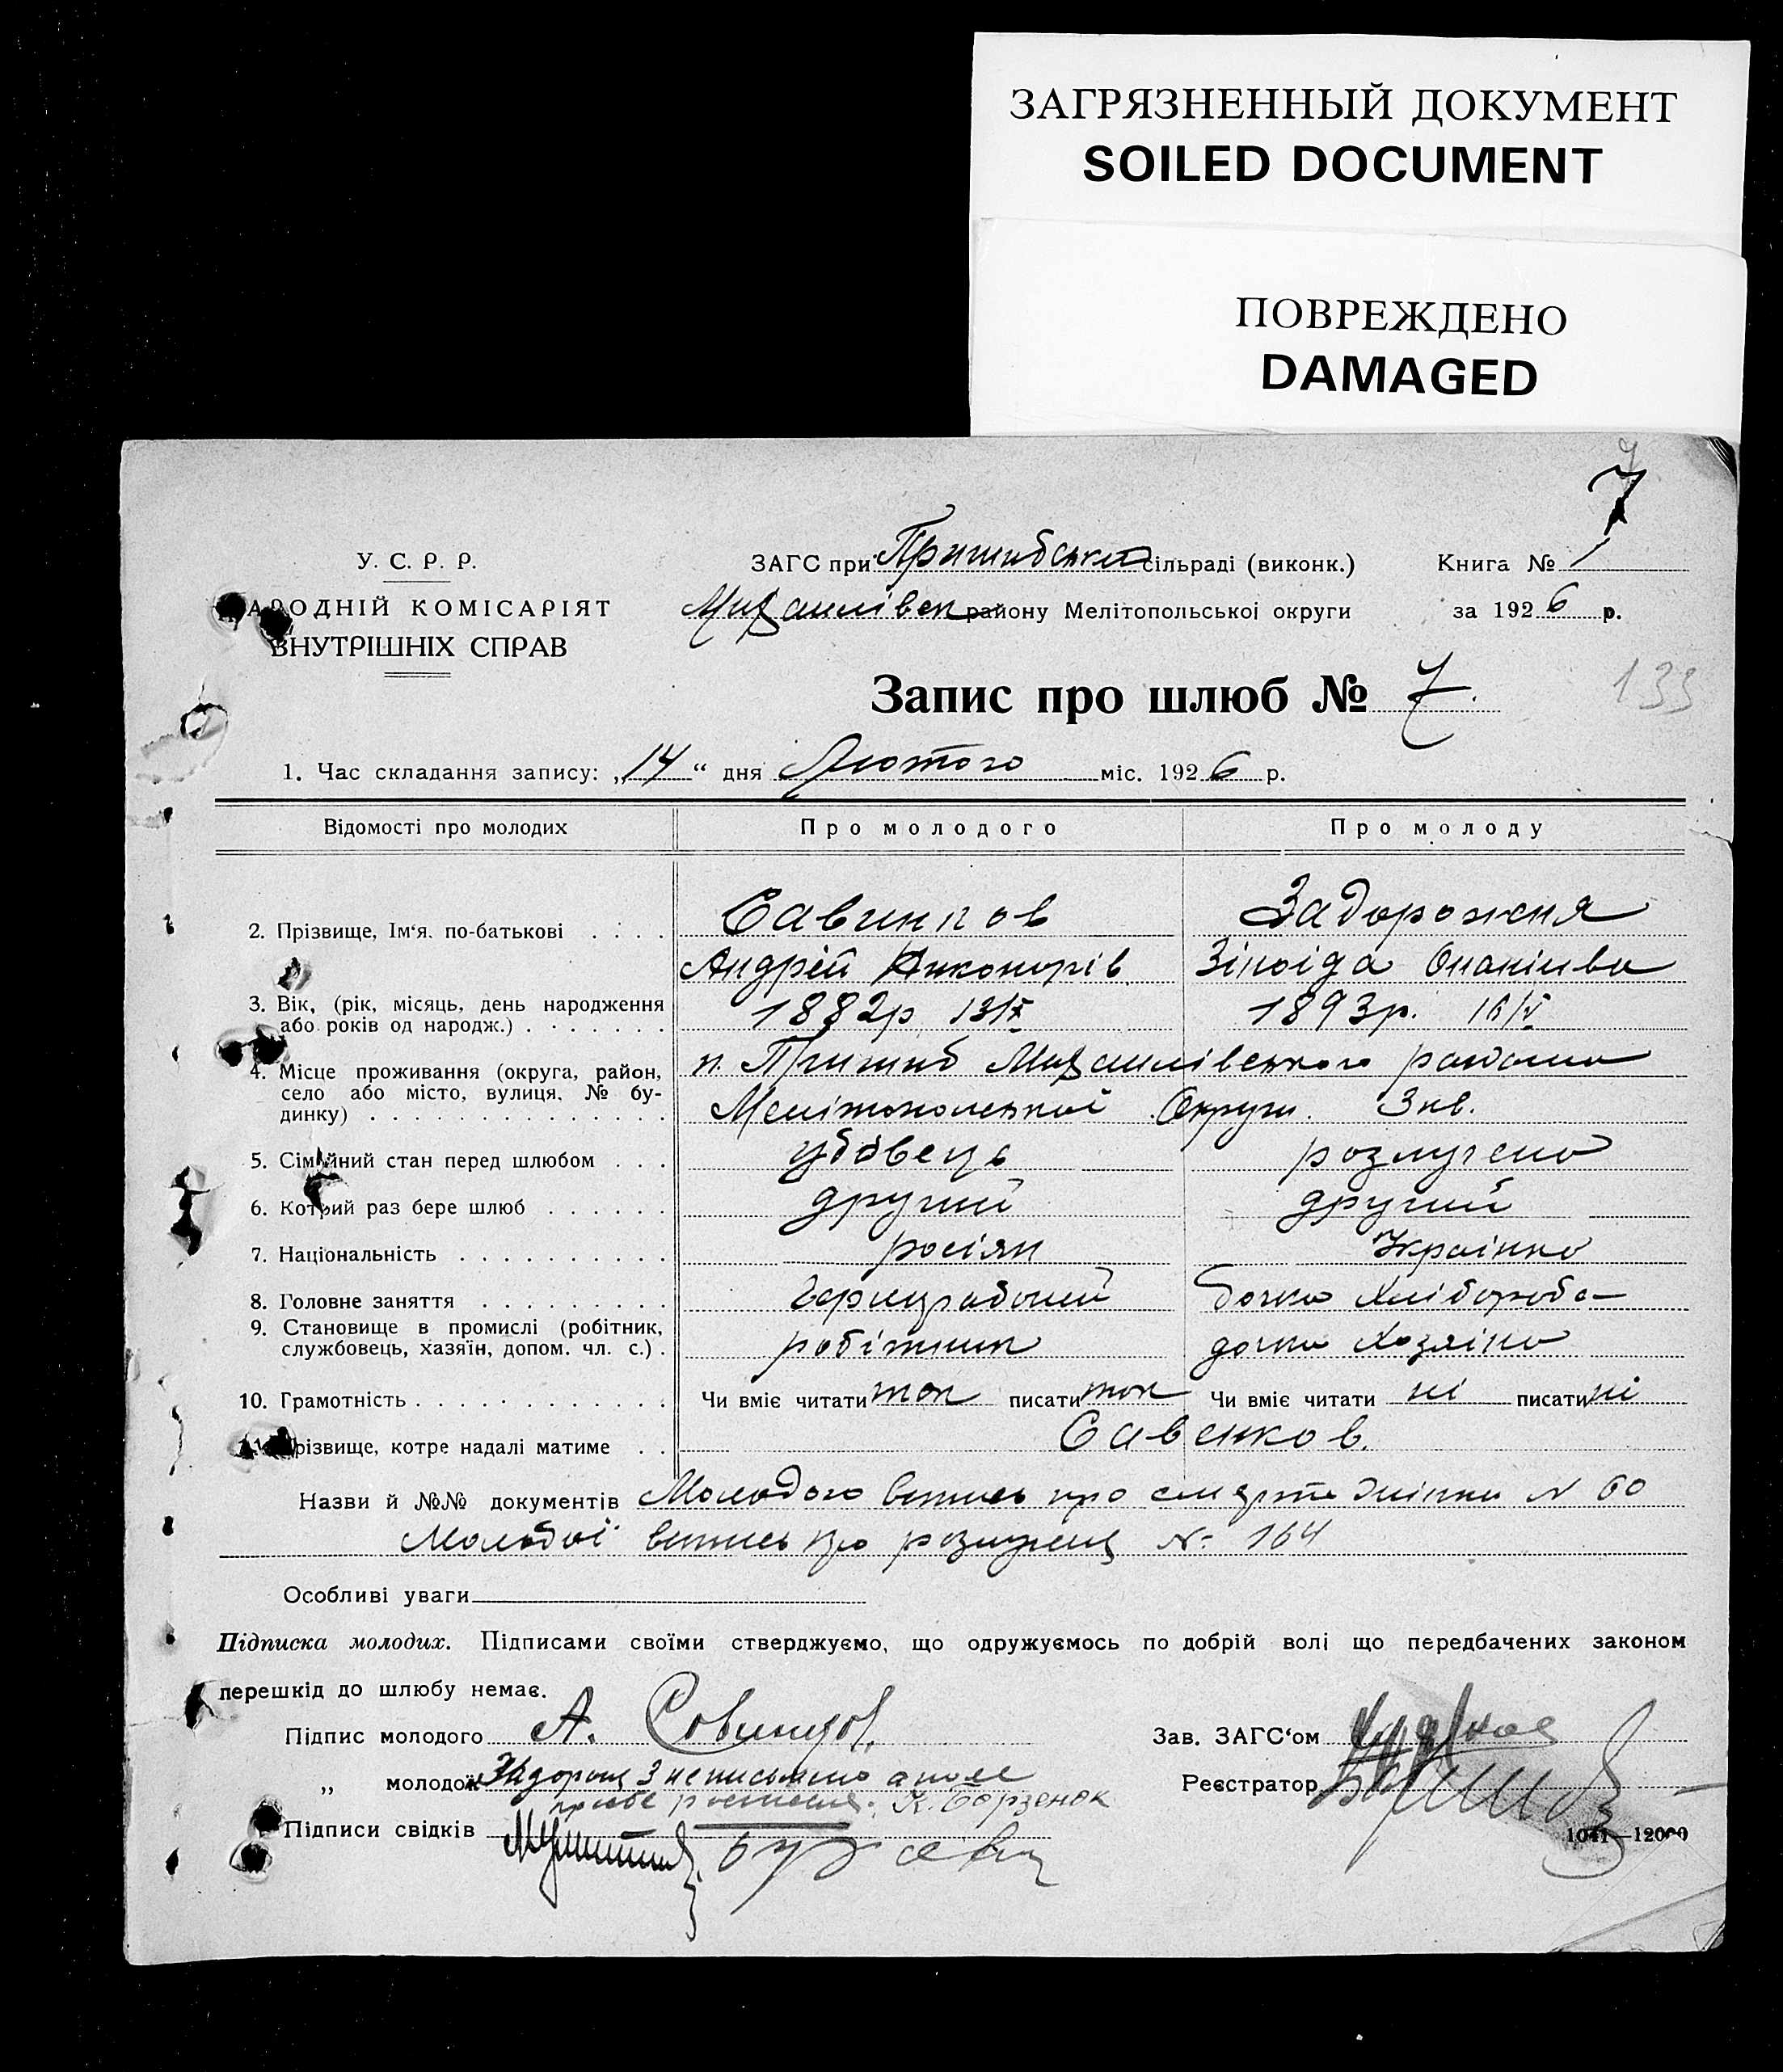 ЗАГРЯЗНЕННЫЙ ДОКУМЕНТ
SOILED DOCUMENT
ПОВРЕЖДЕНО
DAMAGED
7
У. С. Р. Р.
АРОДНІЙ КОМІСАРІЯТ
ВНУТРІШНІХ СПРАВ
ЗАГС при Пришибській сільраді (виконк.)
Михайлівськ району Мелітопольської округи
Книга № 1
за 1926 р.
Запис про шлюб № 7.
133
1. Час складання запису: „14“ дня Лютого міс. 1926 р.
Відомості про молодих Про молодого Про молоду
2. Прізвище, Ім'я, по-батькові . . . . Савинков Задорожня
Андрій Никонорів Зіноіда Онаніива
3. Вік, (рік, місяць, день народження
або років од народж.) . . . . . . . 1882р 13/X 1893р. 16/V
4. Місце проживання (округа, район,
село або місто, вулиця, № бу-
динку) . . . . . . . . . . . . . .
п. Пришиб Михайлівського району
Мелітопольської Округи. 3 кв.
5. Сімейний стан перед шлюбом . . . удовець розлучено
6. Котрий раз бере шлюб . . . . . . другий другий
7. Національність . . . . . . . . . . росіян Українка
8. Головне заняття . . . . . . . . . чорнрабочий дочка Хлібороба
9. Становище в промислі (робітник,
службовець, хазяїн, допом. чл. с.) . робітник дочка Хозяіна
10. Грамотність . . . . . . . . . . . . Чи вміє читати так писати так Чи вміє читати ні писати ні
різвище, котре надалі матиме . . Савенков.
Назви й №№ документів Молодого випись про смерть жінки N 60
Молодої випись про розлучення N 164
Особливі уваги
Підписка молодих. Підписами своїми стверджуємо, що одружуємось по добрій волі що передбачених законом
перешкід до шлюбу немає.
Підпис молодого А. Совинков
Зав. ЗАГС'ом
„ молодої Задорожн З неписьмено а по її
прозьбе росписался К. Борзенок
Реєстратор
Підписи свідків
1041—12000